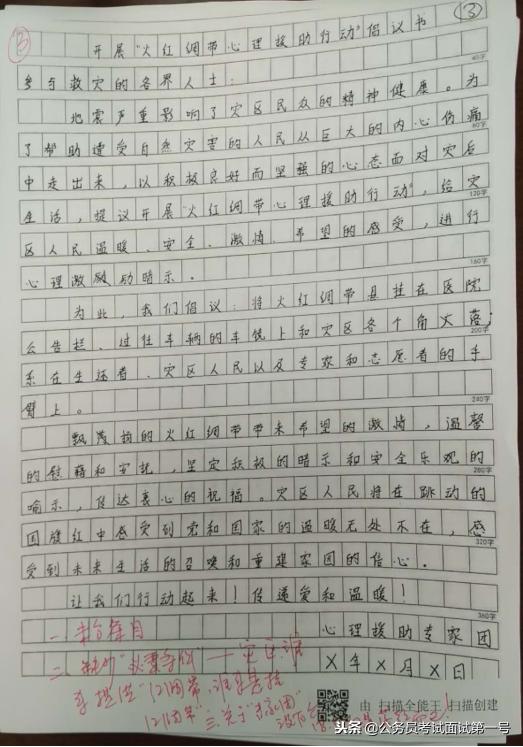 13
13
开展"火红绸带心理援助行动"倡议书
参与救灾的各界人士:
40字
地震严重影响了灾区民众的精神健康。为
了帮助遭受自然灾害的人民从巨大的内心伤痛
80字
中走出来,以积极良好而坚强的心态面对灾后
生活,提议开展"火红绸带心理援助行动",给灾
120字
区人民温暖、安全、激情、希望的感受,进行
心理激励励暗示。
160字
为此,我们倡议:将火红绸带悬挂在医院
公告栏、过往车辆的车镜上和灾区各个角落;
200字
系在生还者、灾区人民以及专家和志愿者的手
臂上。
240字
飘荡的火红绸带带来希望的激情,温馨
的慰藉和安抚,坚定积极的暗示和安全乐观的
280字
喻示,传达衷心的祝福。灾区人民将在跳动的
国旗红中感受到党和国家的温暖无处不在,感
320字
受到未来生活的召唤和重建家园的信心。
让我们行动起来!传递爱和温暖!
360字
心理援助专家团
X年X月X日
一
二
三、关于
由 扫描全能王 扫描创建
头条 @公务员考试面试第一号